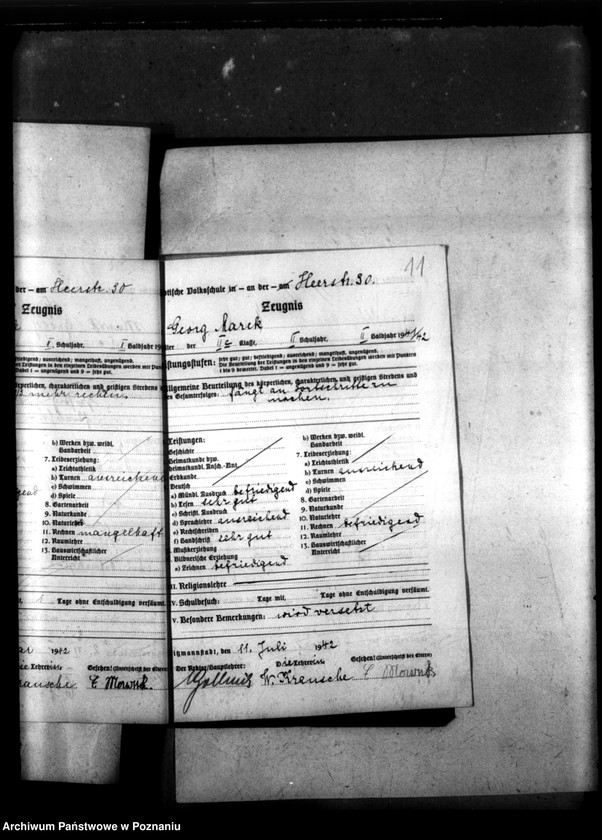 der – am Heerstr. 30
Zeugnis
II Schuljahr. II Halbjahr 194
friedigend; ausreichend; mangelhaft, ungenügend.
mehr rechnen.
b) Werken bzw. weibl.
Handarbeit
7. Leibeserziehung:
a) Leichtathletik
b) Turnen ausreichend
c) Schwimmen
d) Spiele
8. Gartenarbeit
9. Naturkunde
10. Naturlehre
11. Rechnen mangelhaft
12. Raumlehre
13. Hauswirtschaftlicher
Unterricht
1 Tage ohne Entschuldigung versäumt.
1942
Lehrerin: Gesehen! (Unterschrift der Eltern)
Kransche
11
tische Volksschule in – an der – am Heerstr. 30.
Zeugnis
Georg Marek
der II c Klasse, II Schuljahr. II Halbjahr 1941/42
stungsstufen: sehr gut; gut; befriedigend; ausreichend; mangelhaft, ungenügend.
Die Beurteilung der Leistungen in den einzelnen Leibesübungen werden mit Punkten
1 bis 9 bewertet. Dabei 1 = ungenügend und 9 = sehr gut.
Allgemeine Beurteilung des körperlichen, charakterlichen und geistigen Strebens und
Gesamterfolges: fängt an Fortschritte zu
machen.
Leistungen:
Geschichte
Heimatkunde bzw.
heimatkundl. Ansch.-Unt.
Erdkunde
Deutsch
a) Mündl. Ausdruck befriedigend
b) Lesen sehr gut
c) Schriftl. Ausdruck
d) Sprachlehre ausreichend
e) Rechtschreiben
f) Handschrift sehr gut
Musikerziehung
Bildnerische Erziehung
a) Zeichnen befriedigend
b) Werken bzw. weibl.
Handarbeit
7. Leibeserziehung:
a) Leichtathletik
b) Turnen ausreichend
c) Schwimmen
d) Spiele
8. Gartenarbeit
9. Naturkunde
10. Naturlehre
11. Rechnen befriedigend
12. Raumlehre
13. Hauswirtschaftlicher
Unterricht
II. Religionslehre
V. Schulbesuch: Tage mit, Tage ohne Entschuldigung versäumt.
V. Besondere Bemerkungen: wird versetzt
itzmannstadt, den 11. Juli 1942
Der Rektor/Hauptlehrer: Die Lehrerin: Gesehen! (Unterschrift der Eltern)
W. Kransche
Archiwum Państwowe w Poznaniu